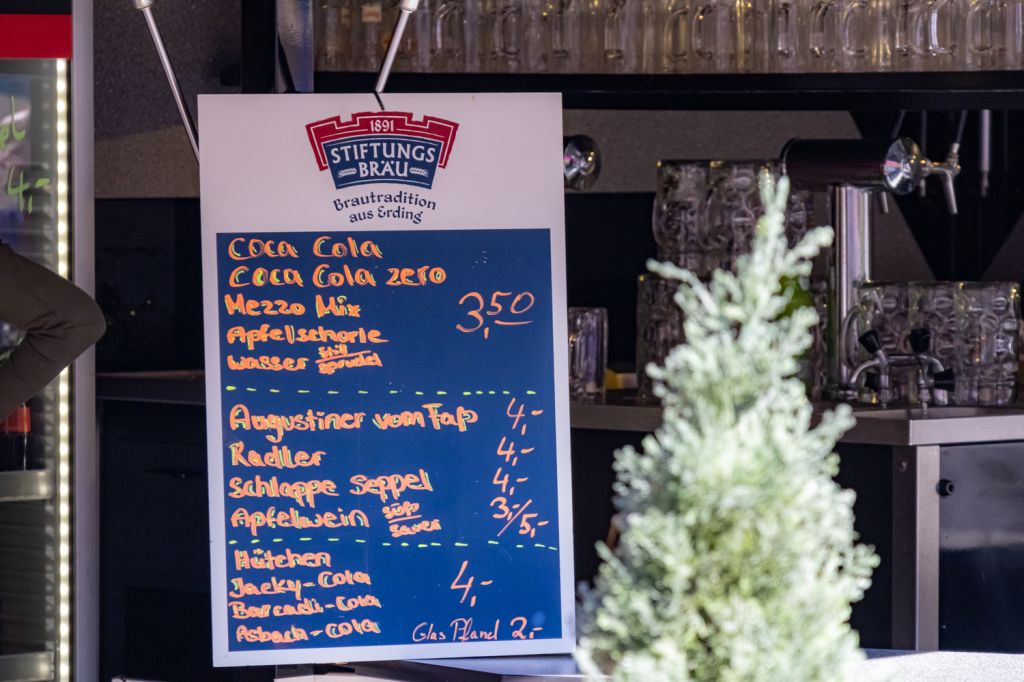 1891
STIFTUNGS
BRÄU
Brautradition
aus Erding
Coca Cola
Coca Cola zero
Mezzo Mix 3,50
Apfelschorle
Wasser still
sprudel
Augustiner vom Faß 4,-
Radler 4,-
Schlappe Seppel 4,-
Apfelwein süß 3,-/5,-
sauer
Hütchen
Jacky-Cola 4,-
Barcadi-Cola
Asbach-Cola
Glas Pfand 2,-
4,-